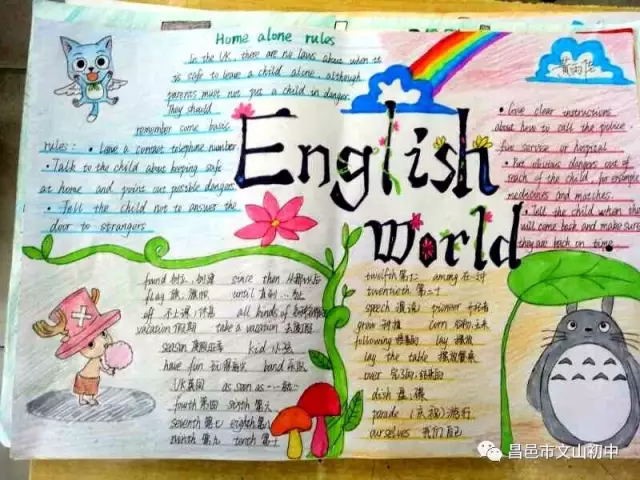 Home alone rules
In the UK, there are no laws about when it
is safe to leave a child alone, although
parents must not put a child in danger.
They should
remember some basic
rules: • Leave a contact telephone number
• Talk to the child about keeping safe
at home and point out possible dangers
• Tell the child not to answer the
door to strangers
English
World
• Give clear instructions
about how to call the police
fire service or hospital
• Put obvious dangers out of
reach of the child, for example
medicines and matches.
• Tell the child when they
will come back and make sure
they are back on time.
found 创立，创建 since then 从那以后
flag 旗，旗帜 until 直到
off 不上课 休息 all kinds of
vacation 假期 take a vacation 去度假
season kid 小孩
have fun band 乐队
UK 英国 as soon as
fourth 第四 sixth 第六
seventh 第七 eighth 第八
ninth 第九 tenth 第十
twelfth 第十二 among 在
twentieth 第二十
speech 演说 pioneer
grow 种植 corn 玉米
following lay 摆放
lay the table 摆放餐桌
over
dish 盘，碟
parade 游行
ourselves 我们自己
昌邑市文山初中